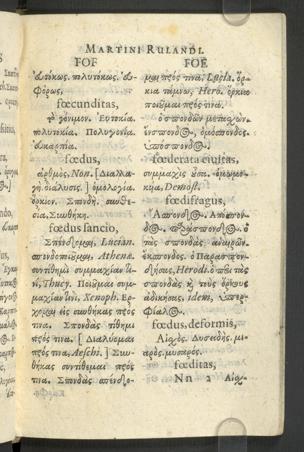 MARTINI RULANDI.
FOE
ἀτόκως. πολυτόκως. εὐ-
φόρως.
fœcunditas,
τὸ γόνιμον. Εὐτοκία.
πολυτοκία. Πολυγονία.
εὐκαρπία.
fœdus,
ἀρθμὸς. Non. [Διαλλα-
γὴ. διάλυσις.] ὁμολογία.
ὅρκιον. Σπονδὴ. συνθε-
σία, Συνθήκη.
fœdus sancio,
Σπένδομαι, Lucian.
σπονδοποιοῦμαι, Athenæ.
συντίθημι συμμαχίαν
Thucy. Ποιοῦμαι συμ-
μαχίαν Xenoph. Ερ-
χομαι εἰς συνθήκας πρός
τινα. Σπονδὰς τίθημι
πρός τινα. [Διαλύομαι
πρός τινα, Aeschi.] Συν-
θήκας συντίθεμαι πρός
τινα. Σπονδὰς
FOE
μαι πρός τινα, Lucia. ὅρ-
κια τέμνω, Hero. ὅρκια
ποιοῦμαι πρός τινα.
ὁ σπονδῶν μετέχων.
ἔνσπονδος, ὁμόσπονδος.
ὑπόσπονδος.
fœderata ciuitas,
συμμαχὶς
Demost.
fœdifragus,
Ασπονδος.
ὁ
τὰς σπονδὰς ἀναιρῶν.
ἔκσπονδος. ὁ Παρασπον-
δήσας, Herodi. ὁ περὶ τὰς
σπονδὰς καὶ τοὺς ὅρκους
ἀδικήσας, idem,
fœdus, deformis,
Αἰσχρὸς. Δυσειδὴς. μι-
αρὸς. μυσαρός.
fœditas,
Nn 2 Αἰσχ-